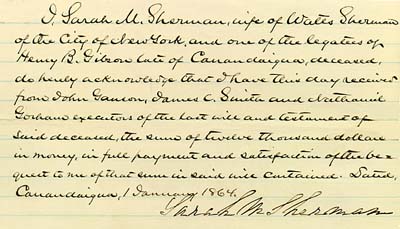 I, Sarah M. Sherman, wife of Watts Sherman
of the City of New York, and one of the legatees of
Henry B. Gibson late of Canandaigua, deceased,
do hereby acknowledge that I have this day received
from John Ganson, James C. Smith and Nathaniel
Gorham executors of the last will and testament of
said deceased, the sum of twelve thousand dollars
in money, in full payment and satisfaction of the be=
quest to me of that sum in said will contained. Dated,
Canandaigua, 1 January 1864.
Sarah M Sherman